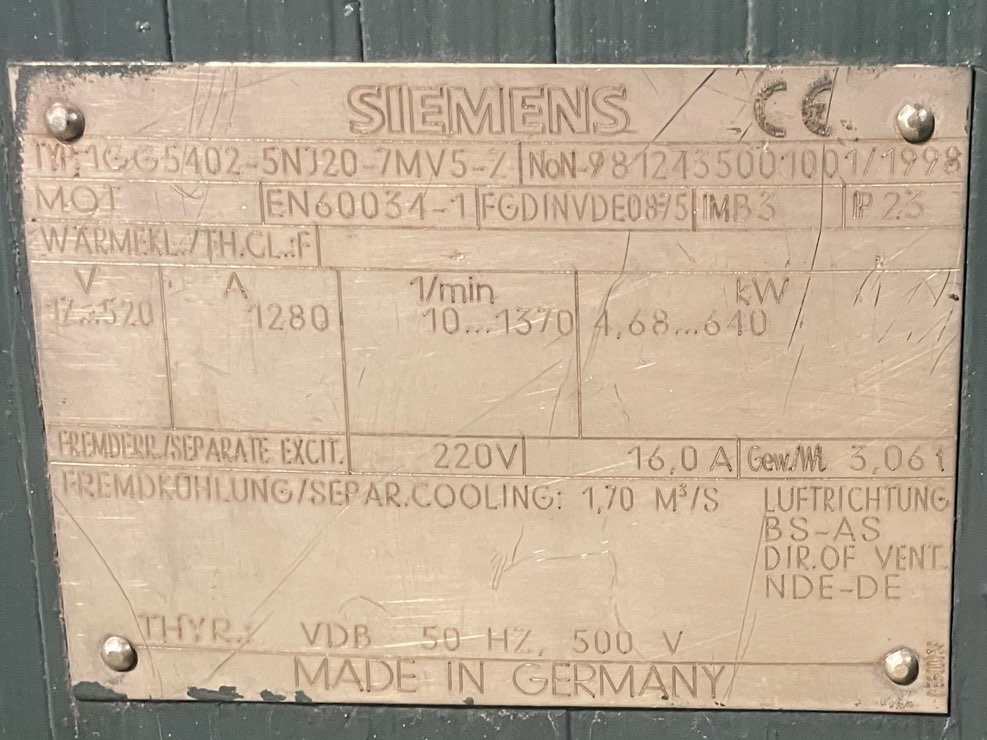 SIEMENS CE
TYP: 1GG5402-5NJ20-7MV5-Z NoN-9812435001001/1998
MOT EN60034-1 FGDINVDE0875 IMB3 IP 23
WÄRMEKL./TH.CL.:F
V A 1/min kW
12...520 1280 10...1370 4,68...640
FREMDERR./SEPARATE EXCIT. 220V 16,0 A Gew./Wt. 3,06t
FREMDKÜHLUNG/SEPAR.COOLING: 1,70 M³/S LUFTRICHTUNG
BS-AS
DIR.OF VENT.
NDE-DE
THYR.: VDB 50 HZ, 500 V
MADE IN GERMANY